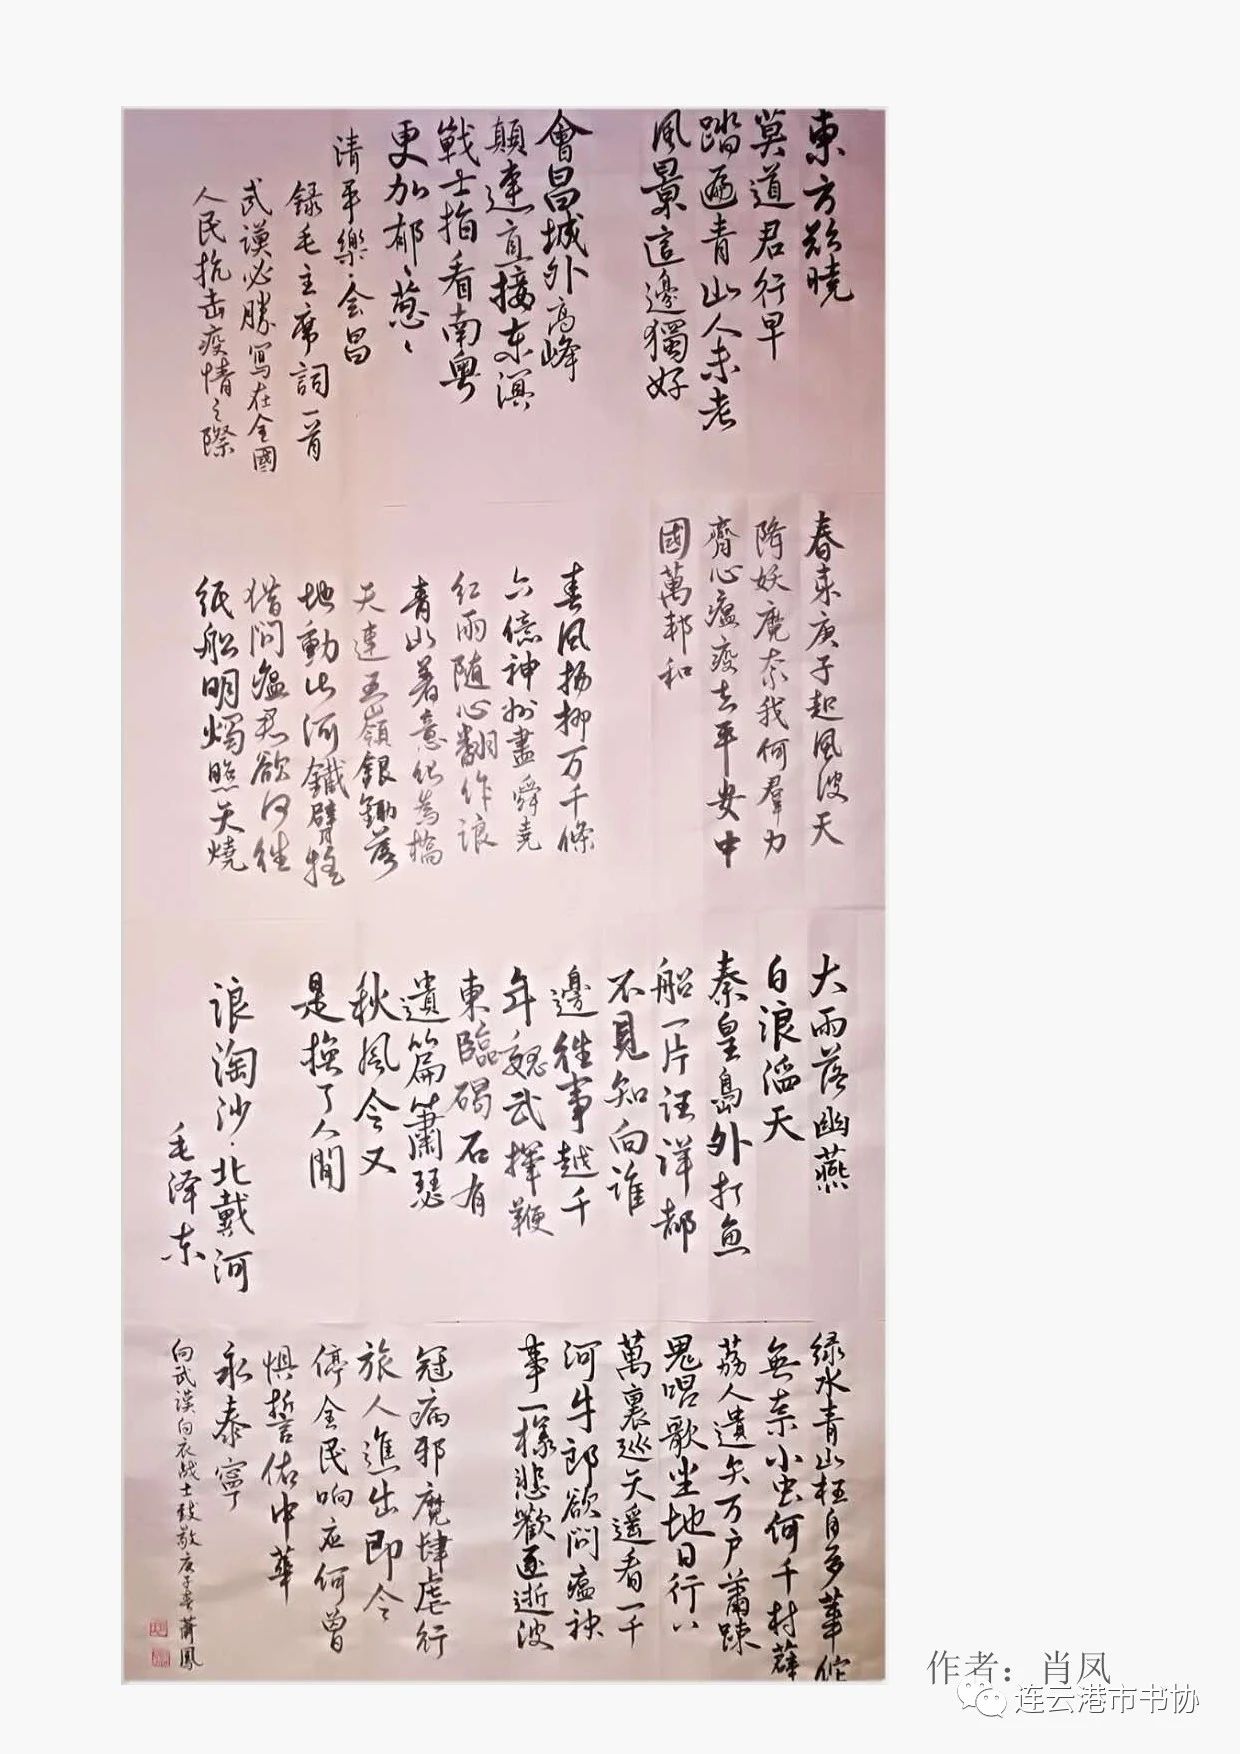 東方欲曉
莫道君行早
踏遍青山人未老
風景這邊獨好
會昌城外高峰
顛連直接东溟
戰士指看南粤
更加郁、葱、
清平樂·会昌
録毛主席詞一首
武漢必勝寫在全國
人民抗击疫情之際
春来庚子起風波天
降妖魔奈我何羣力
齊心瘟疫去平安中
國萬邦和
春风扬柳万千條
六億神州盡舜堯
红雨随心翻作浪
青山着意化為橋
天連五嶺銀鋤落
地動山河鐵臂搖
借问瘟君欲何往
纸船明燭照天燒
大雨落幽燕
白浪滔天
秦皇島外打魚
船一片汪洋都
不見知向谁
邊往事越千
年魏武揮鞭
東臨碣石有
遺篇蕭瑟
秋風今又
是換了人間
浪淘沙·北戴河
毛泽东
绿水青山枉自多華佗
無奈小虫何千村薜
荔人遺矢万户蕭疎
鬼唱歌坐地日行八
萬裏巡天遥看一千
河牛郎欲问瘟神
事一樣悲歡逐逝波
冠病邪魔肆虐行
旅人進出即令
停全民响应何曾
惧誓言佑中華
永泰寧
向武漢白衣战士致敬庚子春蕭鳳
作者：肖凤
连云港市书协